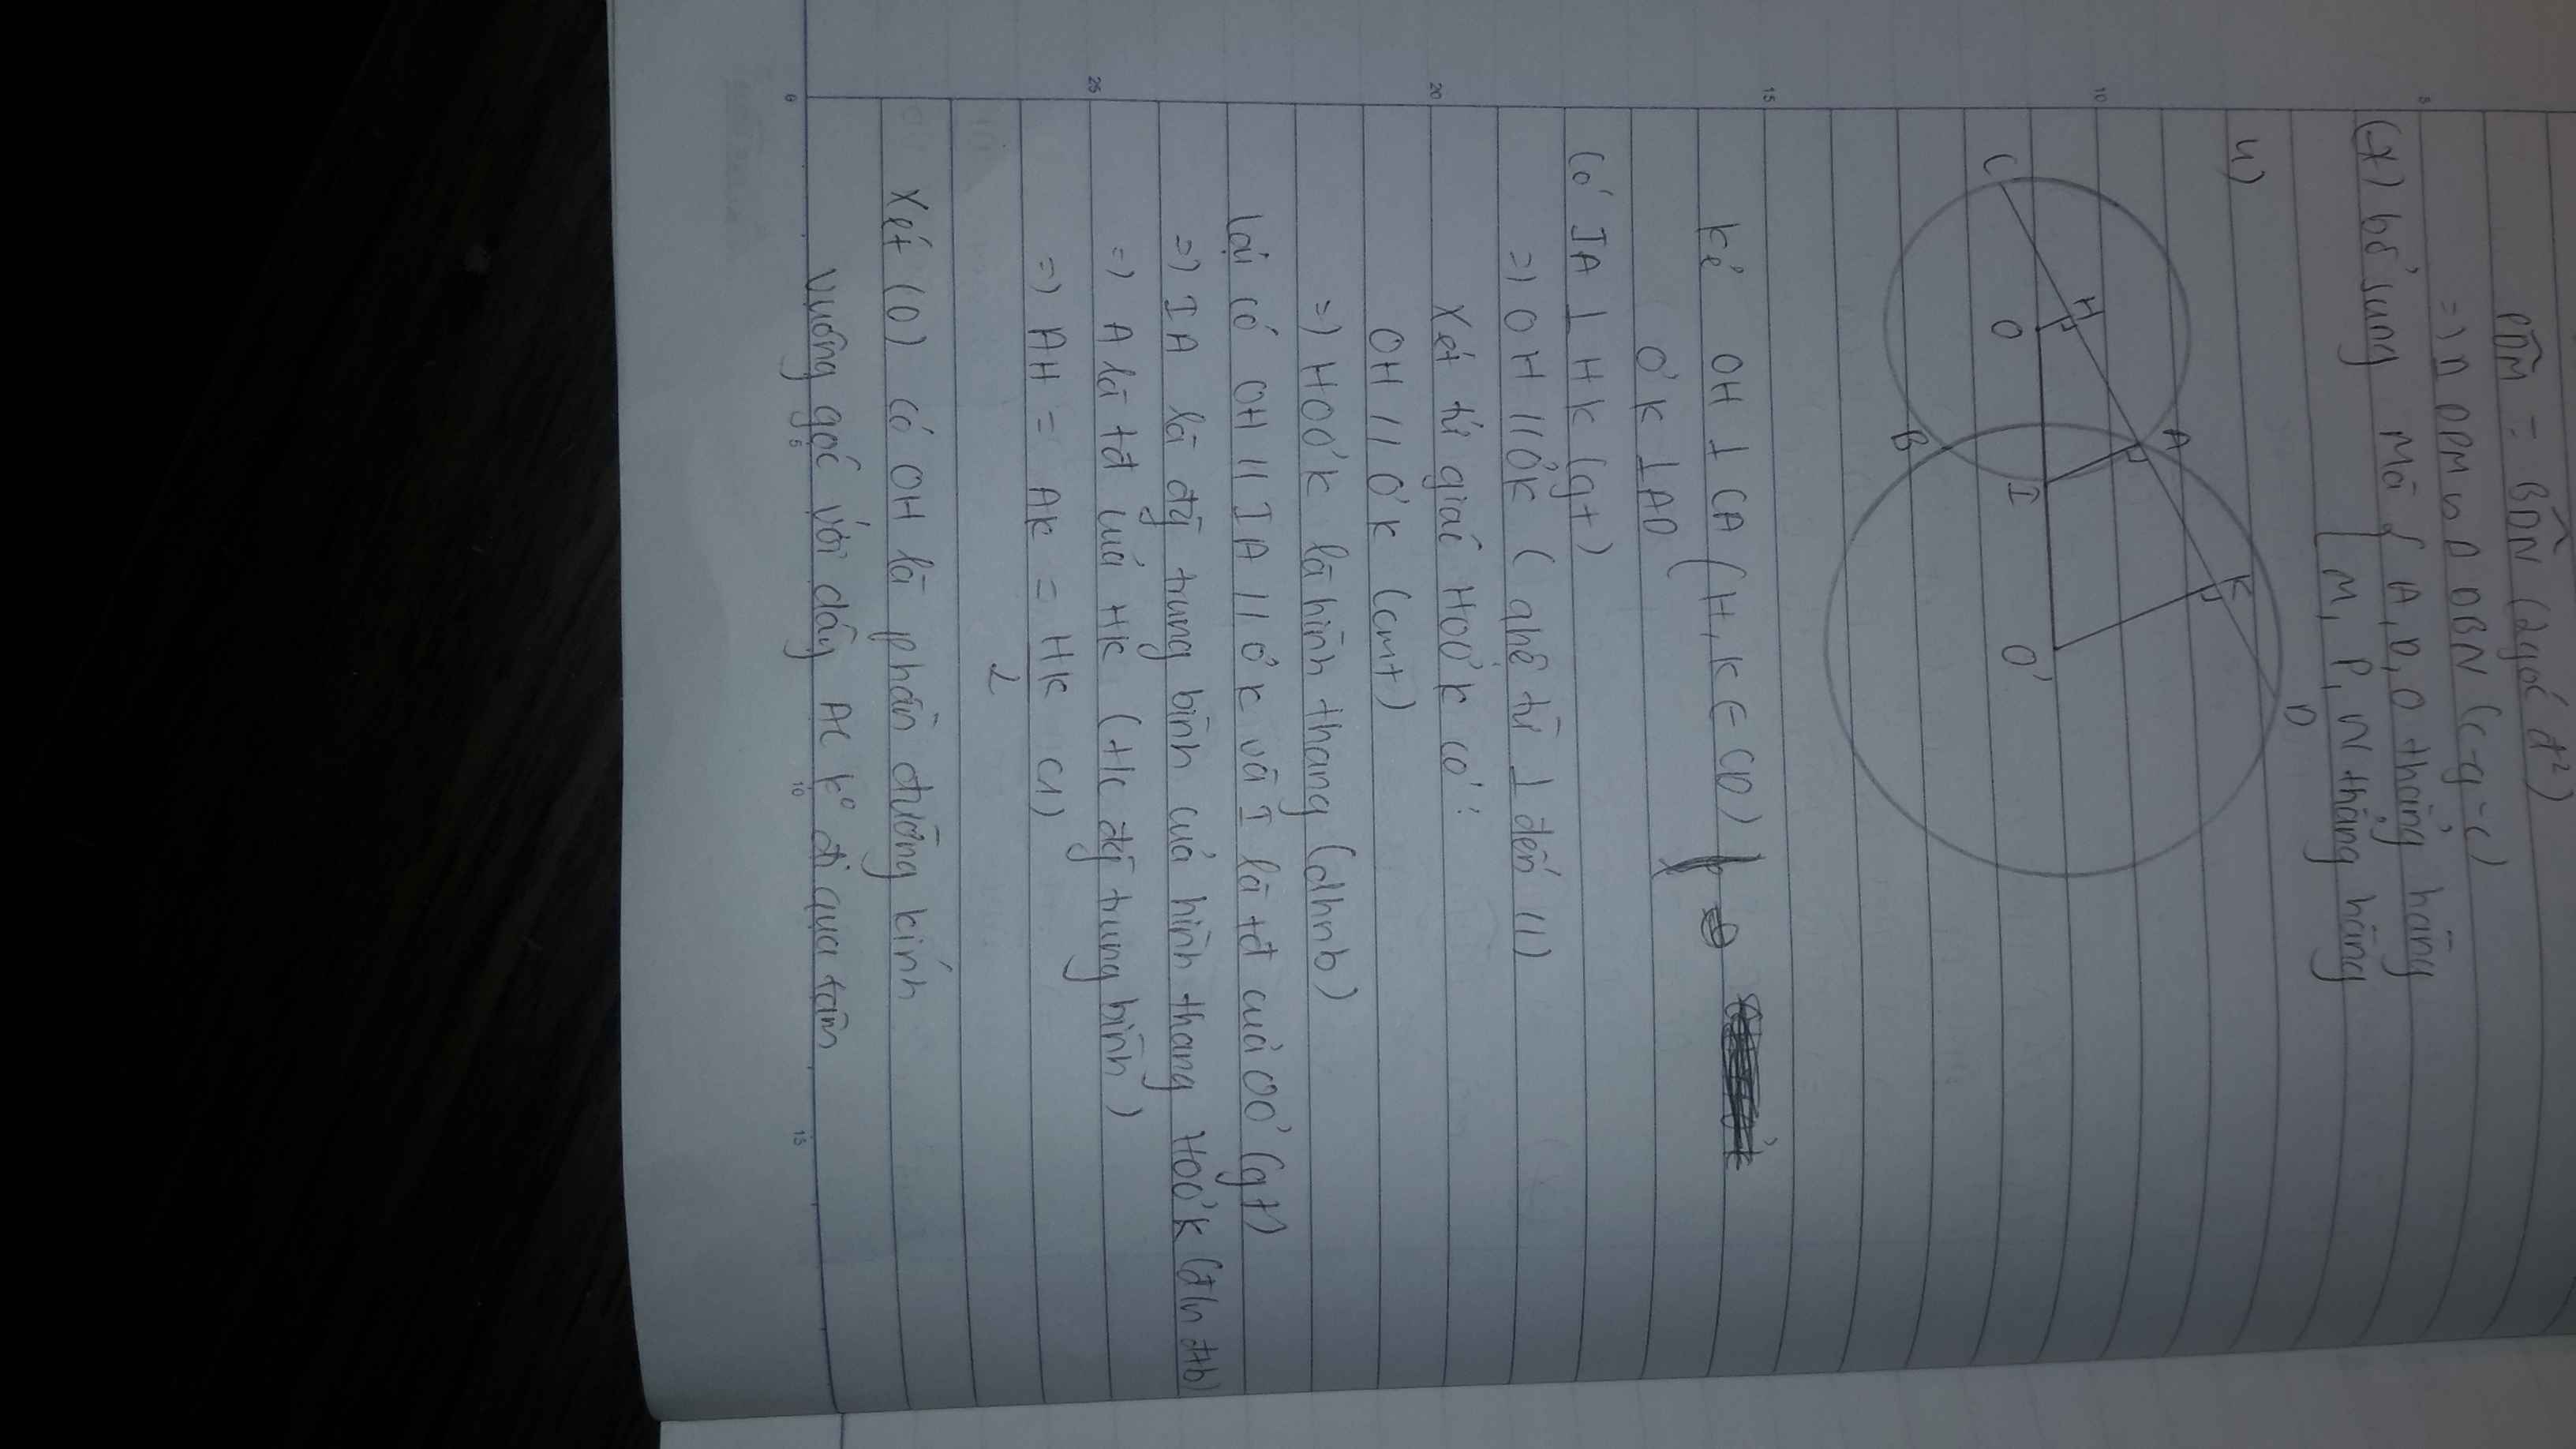 PDM = BDN (2 góc đ²)
=) △ DPM = △ DBN (c-g-c)
(*) bổ sung Mà { A, D, O thẳng hàng
M, P, N thẳng hàng
4)
C H O A B I K O' D
Kẻ OH ⊥ CA (H, K ∈ CD)
O'K ⊥ AD
Có IA ⊥ HK (gt)
=) OH // O'K ( qhệ từ ⊥ đến //)
Xét tứ giác HOO'K có :
OH // O'K (cmt)
=) HOO'K là hình thang (dhnb)
Lại có OH // IA // O'K và I là tđ của OO' (gt)
=) IA là đg trung bình của hình thang HOO'K (đln đtb)
=) A là tđ của HK (t/c đg trung bình)
=) AH = AK = HK/2 (1)
Xét (O) có OH là phần đường kính
vuông góc với dây AC k° đi qua tâm
0 5 10 15
5 10 15 20 25